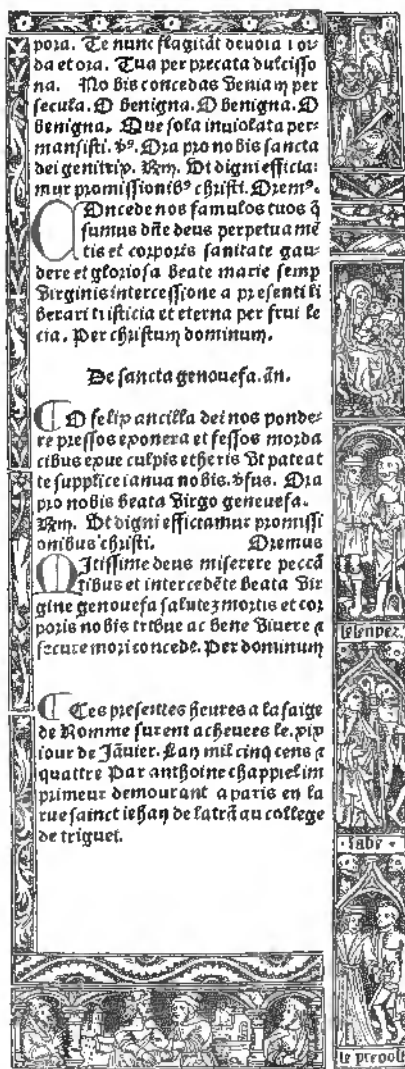 pora. Te nunc flagitāt deuota cor
da et ora. Tua per precata dulcisso
na. No bis concedas Veniam per
secula. O benigna. O benigna. O
benigna. Que sola inuiolata per-
mansisti. v᷒. Ora pro nobis sancta
dei genitrix. Rm. Vt digni efficia-
mur promissionibꝰ christi. Oremꝰ.
COncede nos famulos tuos q̄
sumus dñe deus perpetua mē
tis et corporis sanitate gau-
dere et gloriosa beate marie semp
Virginis intercessione a presenti li
berari tristicia et eterna per frui le
cia. Per christum dominum.
De sancta genouefa. añ.
O felix ancilla dei nos ponde-
re pressos exonera et fessos morda
cibus exue culpis etheris Vt pateat
te supplice ianua nobis. Vsus. Ora
pro nobis beata Virgo geneuefa.
Rm. Vt digni effictamur promissi
onibus christi. Oremus
MItissime deus miserere peccā
tibus et intercedēte beata Vir
gine genouefa salutez mortis et cor
poris nobis tribue ac bene Viuere ⁊
secure mori concede. Per dominum
Ces presentes heures a lusaige
de Romme furent acheuees le. xix
iour de Jāuier. Lan mil cinq cens ⁊
quattre Par anthoine chappiel im
primeur demourant a paris en la
rue sainct iehan de latrā au college
de triguet.
labe
le preuost